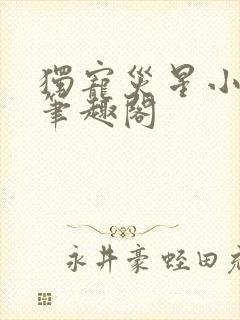 獨寵災星小
筆趣閣
永井豪蛭田充